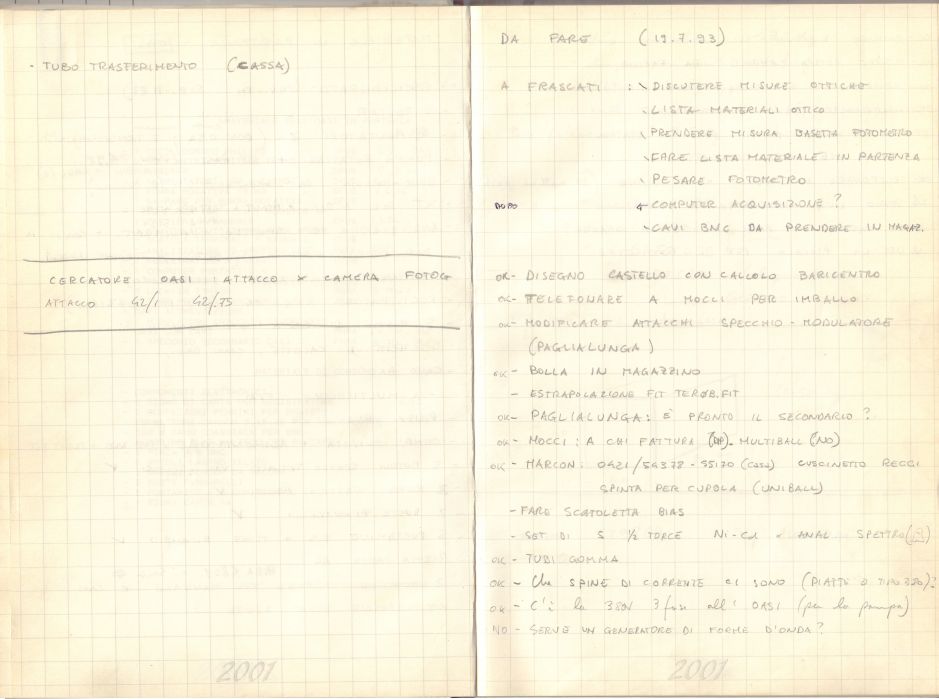 - TUBO TRASFERIMENTO (CASSA)
CERCATORE OASI ATTACCO x CAMERA FOTOG
ATTACCO 42/1 42/.75
2001
DA FARE (19.7.93)
A FRASCATI : \ DISCUTERE MISURE OTTICHE
\ LISTA MATERIALI OTTICO
\ PRENDERE MISURA BASETTA FOTOMETRO
\ FARE LISTA MATERIALE IN PARTENZA
\ PESARE FOTOMETRO
DOPO ← COMPUTER ACQUISIZIONE ?
\ CAVI BNC DA PRENDERE IN MAGAZ.
OK- DISEGNO CASTELLO CON CALCOLO BARICENTRO
OK- TELEFONARE A MOCCI PER IMBALLO
OK- MODIFICARE ATTACCHI SPECCHIO - MODULATORE
(PAGLIALUNGA)
OK- BOLLA IN MAGAZZINO
- ESTRAPOLAZIONE FIT TERØB.FIT
OK- PAGLIALUNGA: E' PRONTO IL SECONDARIO ?
OK- MOCCI : A CHI FATTURA (DIP)- MULTIBALL (NO)
OK- MARCON: 0421/54378 - 55170 (casa) CUSCINETTO REGGI
SPINTA PER CUPOLA (UNIBALL)
- FARO SCATOLETTA BIAS
- SET DI 5 1/2 TORCE Ni-Cd x ANAL SPETTRO
OK- TUBI GOMMA
OK- Che SPINE DI CORRENTE CI SONO (PIATTE O TIPO 380)?
OK- C'è la 380V 3 fasi all' OASI (per la pompa)
NO- SERVE UN GENERATORE DI FORME D'ONDA?
2001